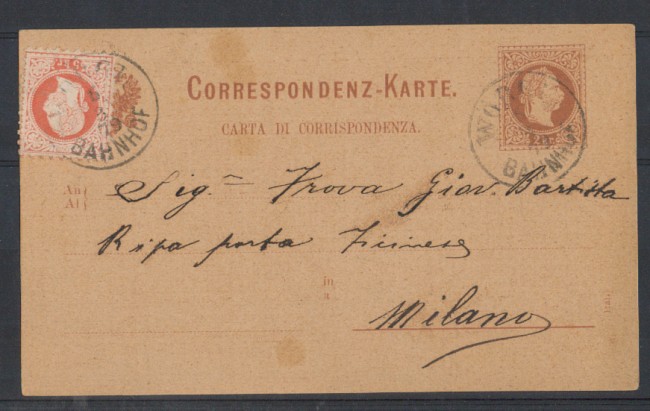 CORRESPONDENZ-KARTE.
CARTA DI CORRISPONDENZA.
BAHNHOF
BAHNHOF
An
Al
Sig.⁼ Trova Giov. Battista
Ripa porta Ticinese
in
a
Milano